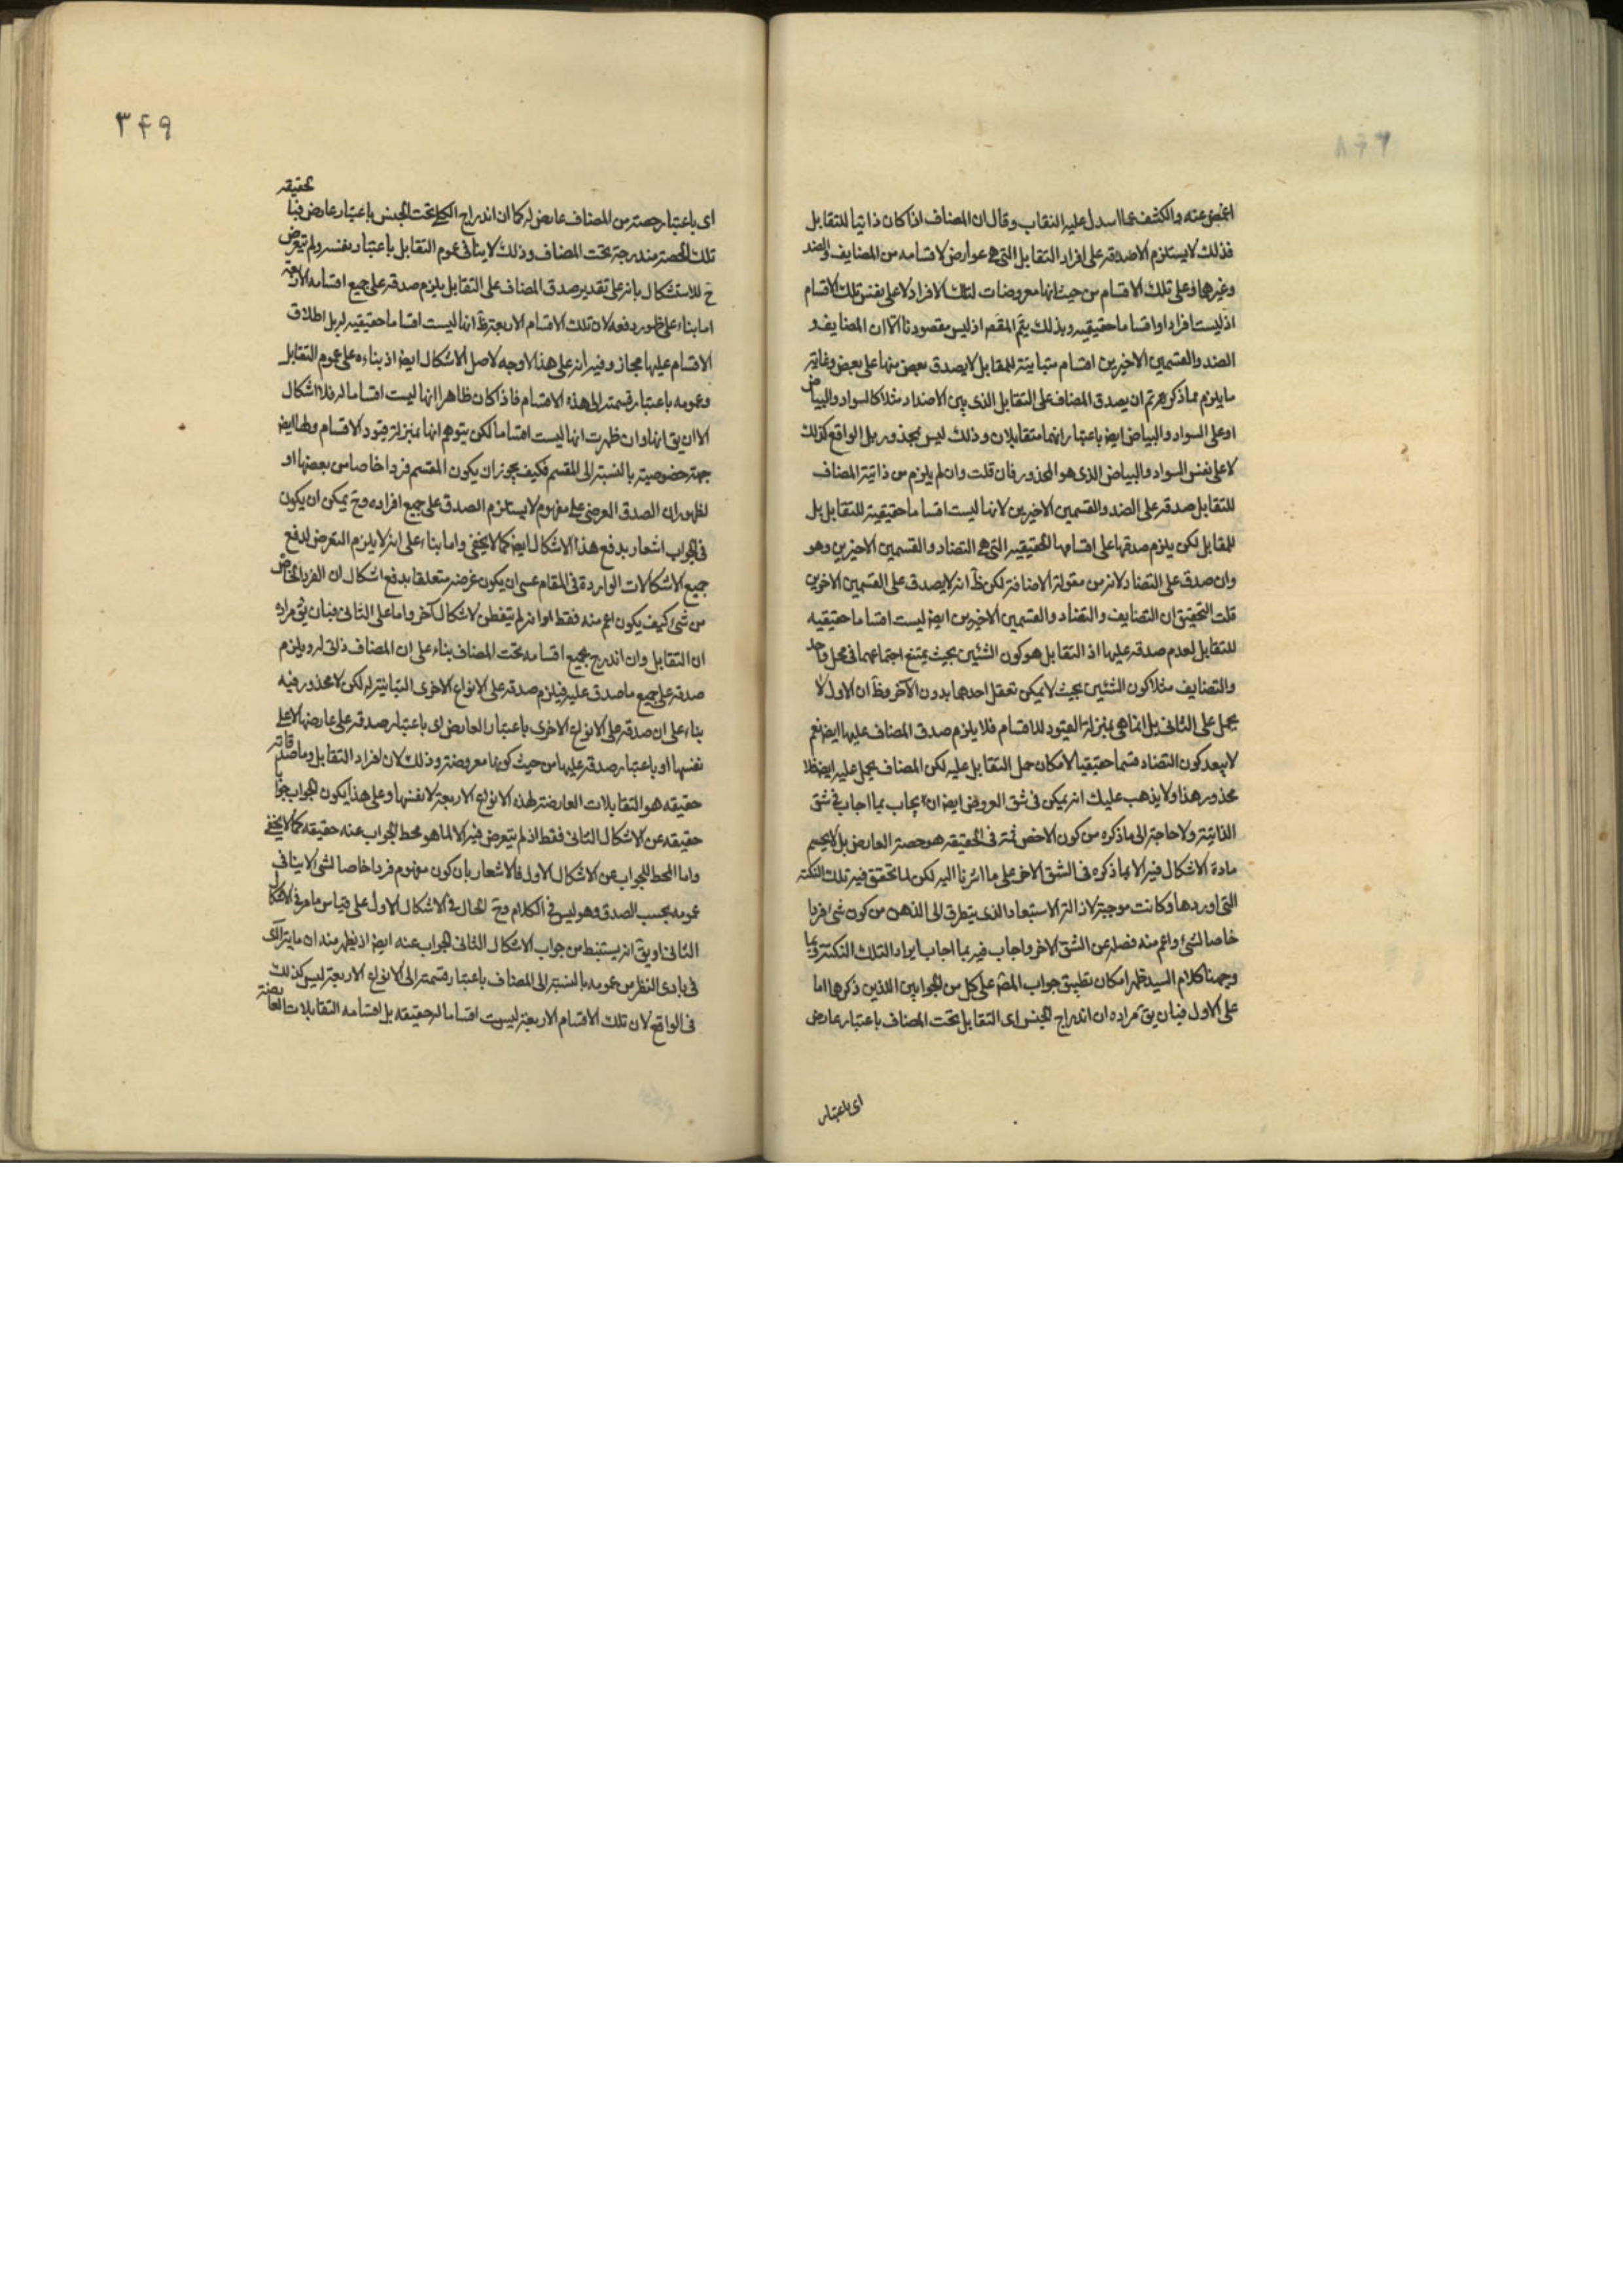 اغمض عنه والكشف عما اسدل عليه النقاب وقال ان المضاف اذا كان ذاتيا للتقابل
فذلك لا يستلزم الا صدقه على افراد التقابل التي هي عوارض لاقسامه من المضايف والضد
وغيرهما وعلى تلك الاقسام من حيث انها معروضات لتلك الافراد لا على نفس تلك الاقسام
اذ ليست افرادا واقساما حقيقيه وبذلك يتم المقصم اذ ليس مقصودنا الا ان المضايف و
الضد والقسمين الاخيرين اقسام متباينة للمقابل لا يصدق بعض منها على بعض وغاية
ما يلزم مما ذكر هو تم ان يصدق المضاف على التقابل الذى بين الاضداد مثلا كالسواد والبياض
او على السواد والبياض ايضا باعتبار انهما متقابلان وذلك ليس بمحذور بل الواقع كذلك
لا على نفس السواد والبياض الذى هو المحذور فان قلت وان لم يلزم من ذاتية المضاف
للتقابل صدقه على الضد والقسمين الاخيرين لانها ليست اقساما حقيقية للتقابل بل
للمقابل لكن يلزم صدقها على اقسامها الحقيقيه التي هي التضاد والقسمين الاخيرين وهو
وان صدق على التضاد لانه من مقولة الاضافة لكن ظ انه لا يصدق على القسمين الاخرين
قلت التحقيق ان التضايف والتضاد والقسمين الاخيرين ايضا ليست اقساما حقيقيه
للتقابل لعدم صدقه عليها اذ التقابل هو كون الشئين بحيث يمتنع اجتماعهما فى محل واحد
والتضايف مثلا كون الشئين بحيث لا يمكن تعقل احدهما بدون الآخر وظ ان الاول لا
يحمل على الثانى بل انما هى بمنزلة القيود للاقسام فلا يلزم صدق المضاف عليها ايضا نعم
لا يبعد كون التضاد قسما حقيقيا لامكان حمل التقابل عليه لكن المضاف يحمل عليه ايضا فلا
محذور هذا ولا يذهب عليك انه يمكن فى شق العروض ايضا ان يجاب بما اجاب فى شق
الذاتية ولا حاجة الى ما ذكره من كون الاخص ثمة فى الحقيقه هو حصة العارض بل لا يحسم
مادة الاشكال فيه الا بما ذكره فى الشق الاخر على ما اشرنا اليه لكن لما تحقق فيه تلك النكتة
التى اوردها وكانت موجبة لازالة الاستبعاد الذى يتطرق الى الذهن من كون شئ فردا
خاصا لشئ واعم منه فصله عن الشق الاخر واجاب فيه بما اجاب ايراد التلك النكتة وبما
وجهنا كلام السيد ظهر امكان تطبيق جواب المصم على كل من الجوابين اللذين ذكرهما اما
على الاول فبان يق مراده ان اندراج الجنس اى التقابل تحت المضاف باعتبار عارض
اى باعتبار
٣۴٩
اى باعتبار حصة من المضاف عارض له كما ان اندراج الكلى تحت الجنس باعتبار عارض فبا حقيقه
تلك الحصة مندرجة تحت المضاف وذلك لا ينافى عموم التقابل باعتبار نفسه ولم يتعرض
ح للاستشكال بانه على تقدير صدق المضاف على التقابل يلزم صدقه على جميع اقسامه الاربعة
اما بناء على ظهور دفعه لان تلك الاقسام الاربعة ظ انها ليست اقساما حقيقيه له بل اطلاق
الاقسام عليها مجاز وفيه انه على هذا لا وجه لاصل الاشكال ايضا اذ بناءه على عموم التقابل
وعمومه باعتبار قسمته الى هذه الاقسام فاذا كان ظاهرا انها ليست اقساما له فلا اشكال
الا ان يق انها وان ظهرت انها ليست اقساما لكن يتوهم انها بمنزلة قيود الاقسام ولها ايضا
جهة خصوصية بالنسبة الى المقسم فكيف يجوز ان يكون المقسم فردا خاصا من بعضها او
لظهور ان الصدق العرضى على مفهوم لا يستلزم الصدق على جميع افراده وح يمكن ان يكون
فى الجواب اشعار بدفع هذا الاشكال ايضا كما لا يخفى واما بناء على انه لا يلزم التعرض لدفع
جميع الاشكالات الواردة فى المقام عسى ان يكون غرضه متعلقا بدفع اشكال ان الفرد الخاص
من شئ كيف يكون اعم منه فقط او انه لم يتفطن لاشكال آخر واما على الثانى فبان يق مراده
ان التقابل وان اندرج بجميع اقسامه تحت المضاف بناء على ان المضاف ذاتى له ويلزم
صدقه على جميع ما صدق عليه فيلزم صدقه على الانواع الاخرى المباينة له لكن لا محذور فيه
بناء على ان صدقه على الانواع الاخرى باعتبار العارض اى باعتبار صدقه على عارضها لا على
نفسها او باعتبار صدقه عليها من حيث كونها معروضة وذلك لان افراد التقابل وما صدقاته
حقيقه هو التقابلات العارضة لهذه الانواع الاربعة لا نفسها وعلى هذا يكون الجواب جوابا
حقيقه عن الاشكال الثانى فقط اذ لم يتعرض فيه الا لما هو محط الجواب عنه حقيقه كما لا يخفى
واما المحط للجواب عن الاشكال الاول فالاشعار بان كون مفهوم فردا خاصا لشئ لا ينافى
عمومه بحسب الصدق وهو ليس فى الكلام وح الحال فى الاشكال الاول على قياس ما مر فى الاشكال
الثانى او يق انه يستنبط من جواب الاشكال الثانى الجواب عنه ايضا اذ يظهر منه ان ما يتراآى
فى بادى النظر من عمومه بالنسبة الى المضاف باعتبار قسمته الى الانواع الاربعة ليس كذلك
فى الواقع لان تلك الاقسام الاربعة ليست اقساما له حقيقه بل اقسامه التقابلات العارضة